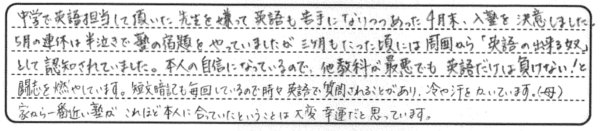 中学で英語担当して頂いた先生を嫌って英語も苦手になりつつあった4月末、入塾を決意しました。
5月の連休は半泣きで塾の宿題をやっていましたが三ヶ月もたった頃には周囲から「英語の出来る奴」
として認知されていました。本人の自信になっているので、他教科が最悪でも英語だけは負けない!と
闘志を燃やしています。短文暗記も毎回しているので時々英語で質問されることがあり、冷や汗をかいています。(母)
家から一番近い塾がこれほど本人に合っていたということは大変幸運だと思っています。